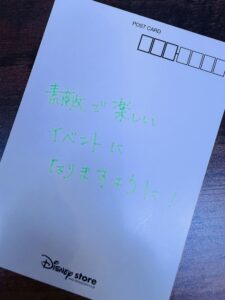 POST CARD
素敵で楽しい
イベントに
なりますように！
Disney store